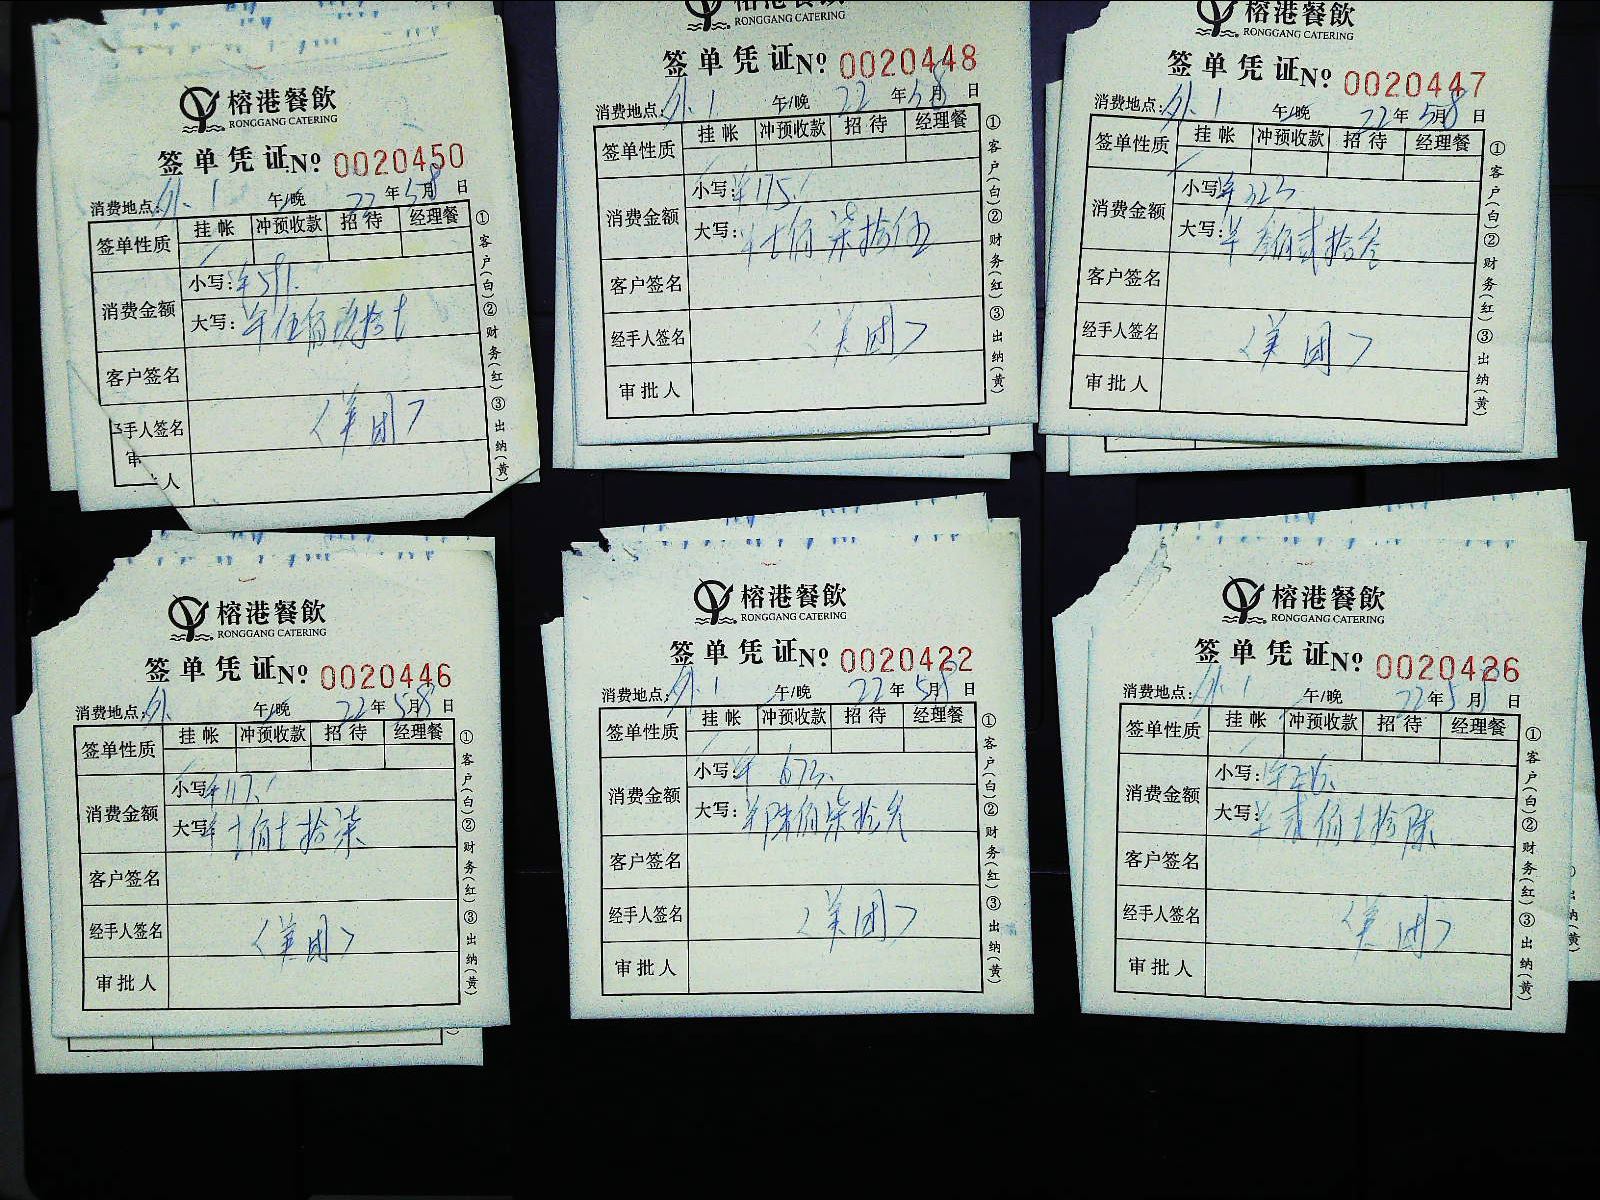 榕港餐飲
RONGGANG CATERING
签单凭证 № 0020450
消费地点: 外.1 午/晚 22年5月8日
签单性质 挂帐 冲预收款 招待 经理餐
消费金额 小写:
大写:
客户签名
手人签名 〈美团〉
审
人
①客户(白)②财务(红)③出纳(黄)
榕港餐飲
RONGGANG CATERING
签单凭证 № 0020448
消费地点: 外.1 午/晚 22年5月8日
签单性质 挂帐 冲预收款 招待 经理餐
消费金额 小写: ¥175.
大写: ¥七佰柒拾伍
客户签名
经手人签名 〈美团〉
审批人
①客户(白)②财务(红)③出纳(黄)
榕港餐飲
RONGGANG CATERING
签单凭证 № 0020447
消费地点: 外.1 午/晚 22年5月8日
签单性质 挂帐 冲预收款 招待 经理餐
消费金额 小写: ¥323
大写: ¥叁佰贰拾叁
客户签名
经手人签名 〈美团〉
审批人
①客户(白)②财务(红)③出纳(黄)
榕港餐飲
RONGGANG CATERING
签单凭证 № 0020446
消费地点: 外. 午/晚 22年5月8日
签单性质 挂帐 冲预收款 招待 经理餐
消费金额 小写: ¥117.
大写:
客户签名
经手人签名 〈美团〉
审批人
①客户(白)②财务(红)③出纳(黄)
榕港餐飲
RONGGANG CATERING
签单凭证 № 0020422
消费地点: 外.1 午/晚 22年5月8日
签单性质 挂帐 冲预收款 招待 经理餐
消费金额 小写: ¥673.
大写: ¥陆佰柒拾叁
客户签名
经手人签名 〈美团〉
审批人
①客户(白)②财务(红)③出纳(黄)
榕港餐飲
RONGGANG CATERING
签单凭证 № 0020426
消费地点: 外.1 午/晚 22年5月8日
签单性质 挂帐 冲预收款 招待 经理餐
消费金额 小写:
大写:
客户签名
经手人签名 〈美团〉
审批人
①客户(白)②财务(红)③出纳(黄)